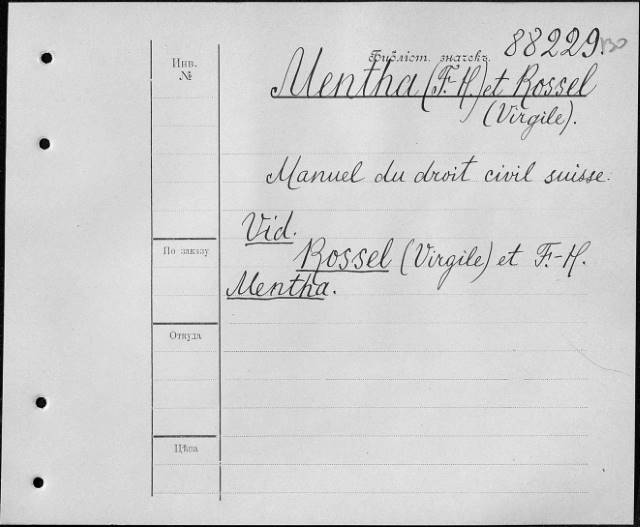 88229
Инв.
№
Библіот. значекъ.
Mentha (F.-H.) et Rossel
(Virgile).
Manuel du droit civil suisse.
Vid.
Rossel (Virgile) et F.-H.
Mentha.
По заказу
Откуда
Цѣна